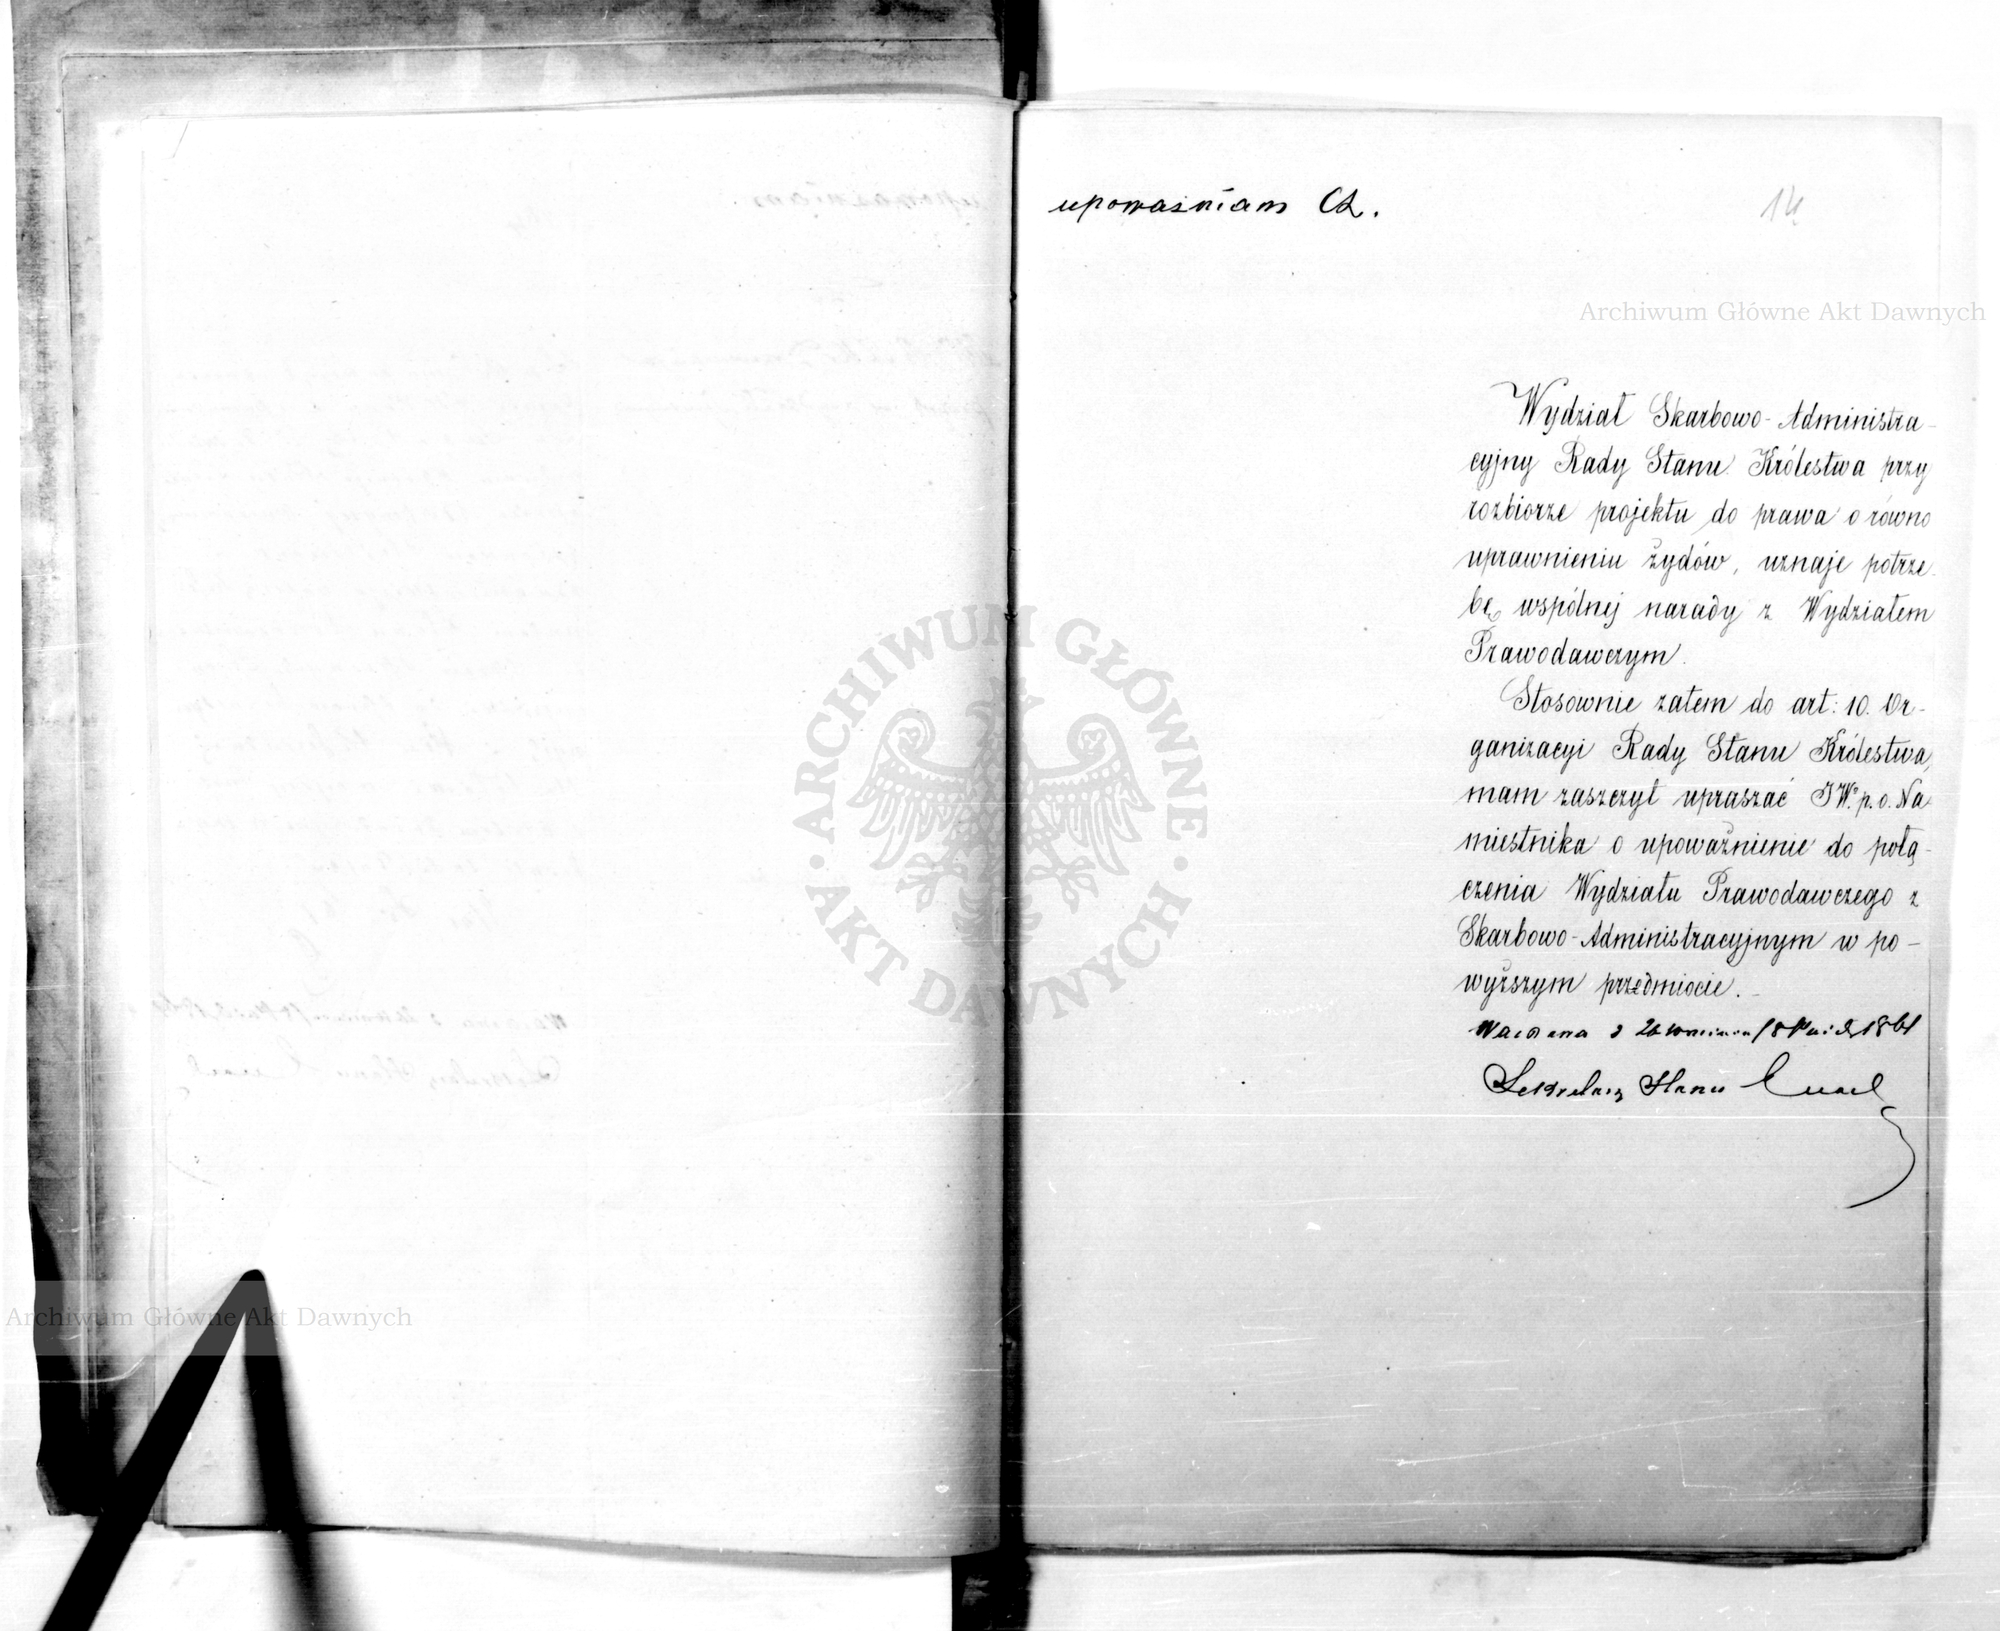 upoważniam Ch.
14
Archiwum Główne Akt Dawnych
Wydział Skarbowo-Administra-
cyjny Rady Stanu Królestwa przy
rozbiorze projektu do prawa o równo
uprawnieniu żydów, uznaje potrze-
bę wspólnej narady z Wydziałem
Prawodawczym.
Stosownie zatem do art: 10. Or-
ganizacyi Rady Stanu Królestwa,
mam zaszczyt upraszać JWo p. o. Na-
miestnika o upoważnienie do połą-
czenia Wydziału Prawodawczego z
Skarbowo-Administracyjnym w po-
wyższym przedmiocie.
Warszawa d 26 Września/8 Paźd 1861
Sekretarz Stanu
ARCHIWUM GŁÓWNE
AKT DAWNYCH
Archiwum Główne Akt Dawnych